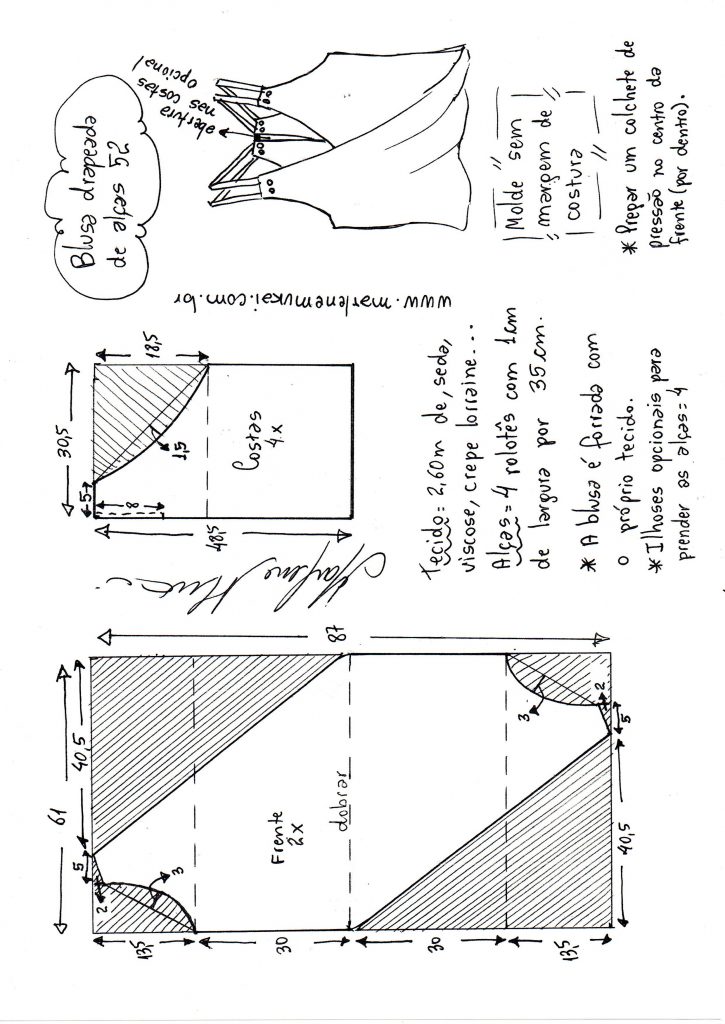 Blusa drapeada
de alças 52
abertura
nas costas
opcional
Molde sem
margem de
costura
* Prepar um colchete de
pressão no centro da
frente (por dentro).
www.marlenemukai.com.br
30,5
18,5
5
8
1,5
48,5
Costas
4x
Tecido = 2,60m de, seda,
viscose, crepe lorraine...
Alças = 4 rolotês com 1cm
de largura por 35 cm.
* A blusa é forrada com
o próprio tecido.
* Ilhoses opcionais para
prender as alças = 4
61
40,5
5
2
3
87
13,5
30
30
13,5
Frente
2x
dobrar
3
2
5
40,5